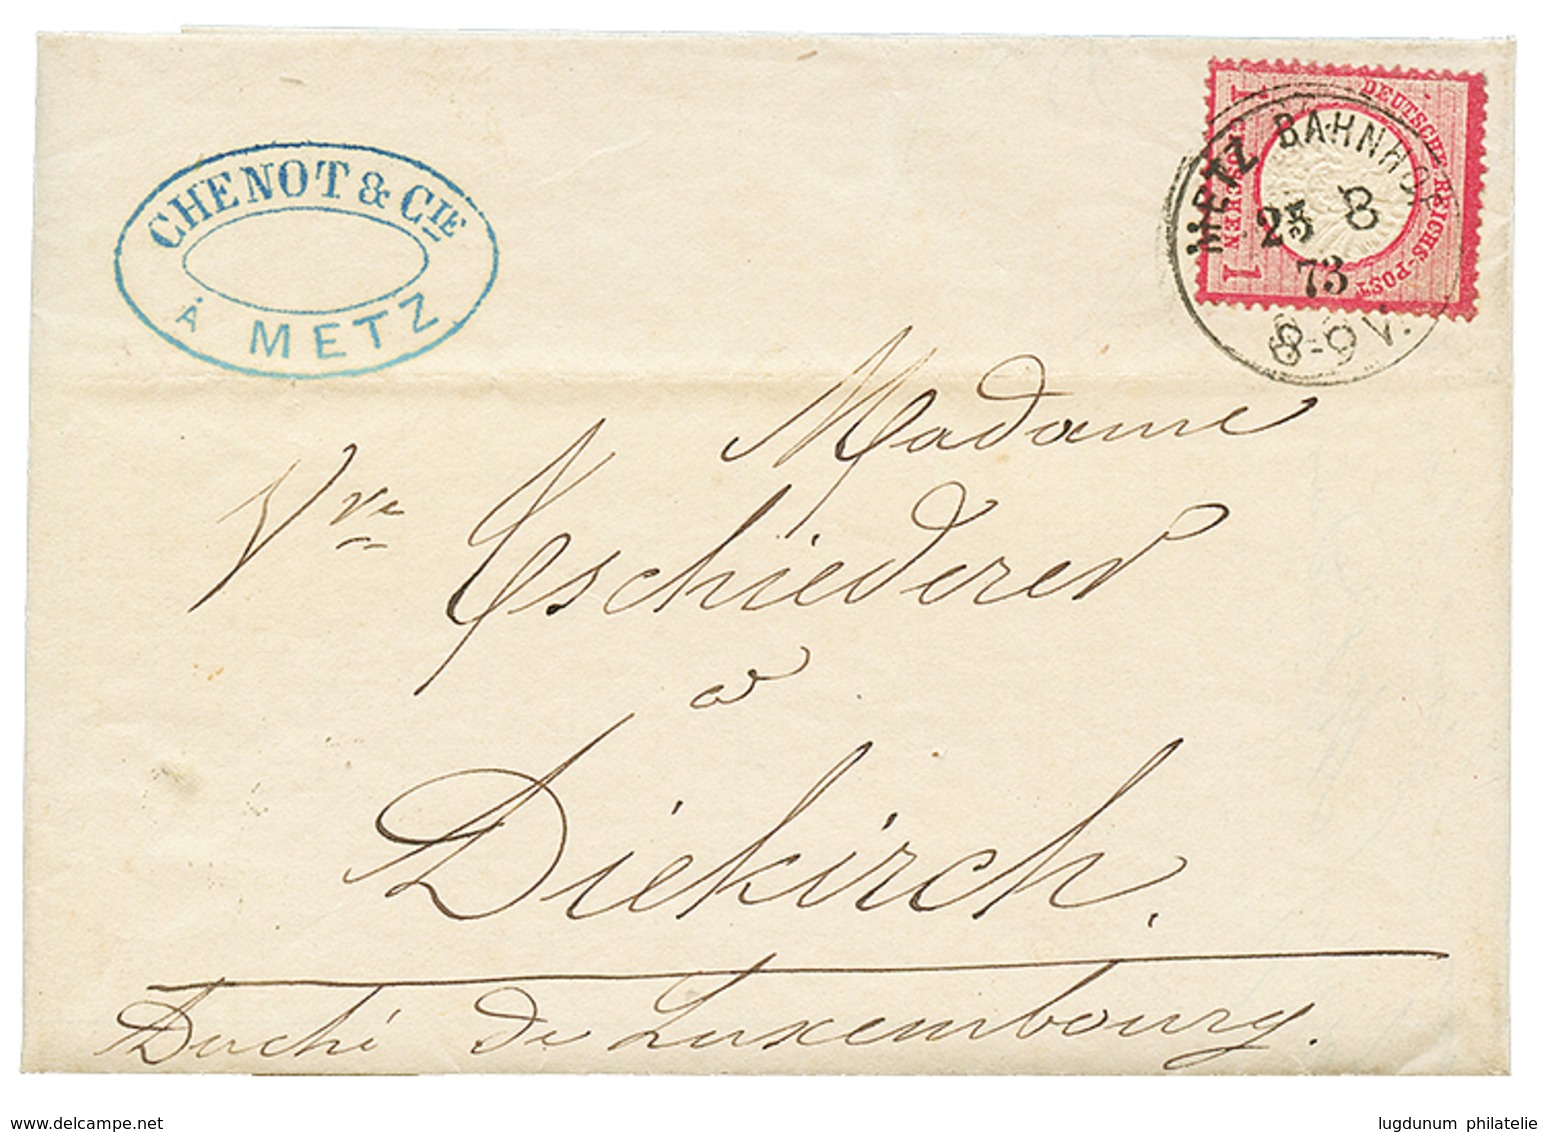 CHENOT & CIE
À METZ
DEUTSCHE REICHS-POST
1 1
METZ BAHNHOF
25 8
73
8-9 V.
Madame
Vve Tschiederer
a
Diekirch.
Duché de Luxembourg.
www.delcampe.net
lugdunum philatelie